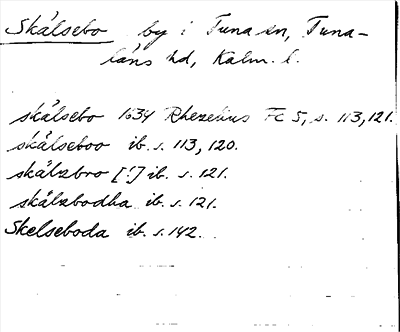 Skälsebo by i Tuna sn, Tuna-
läns hd, Kalm. l.
skålsebo 1634 Rhezelius Fc 5, s. 113, 121.
skålseboo ib. s. 113, 120.
skälzbro [!] ib. s. 121.
skälzbodha ib. s. 121.
Skelseboda ib. s. 142.